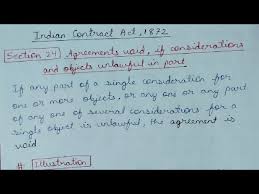 Indian Contract Act, 1872
Section 24) Agreements void, if considerations
and objects unlawful in part
If any part of a single consideration for
one or more objects, or any one or any part
of any one of several considerations for a
single object is unlawful, the agreement is
void
# Illustration